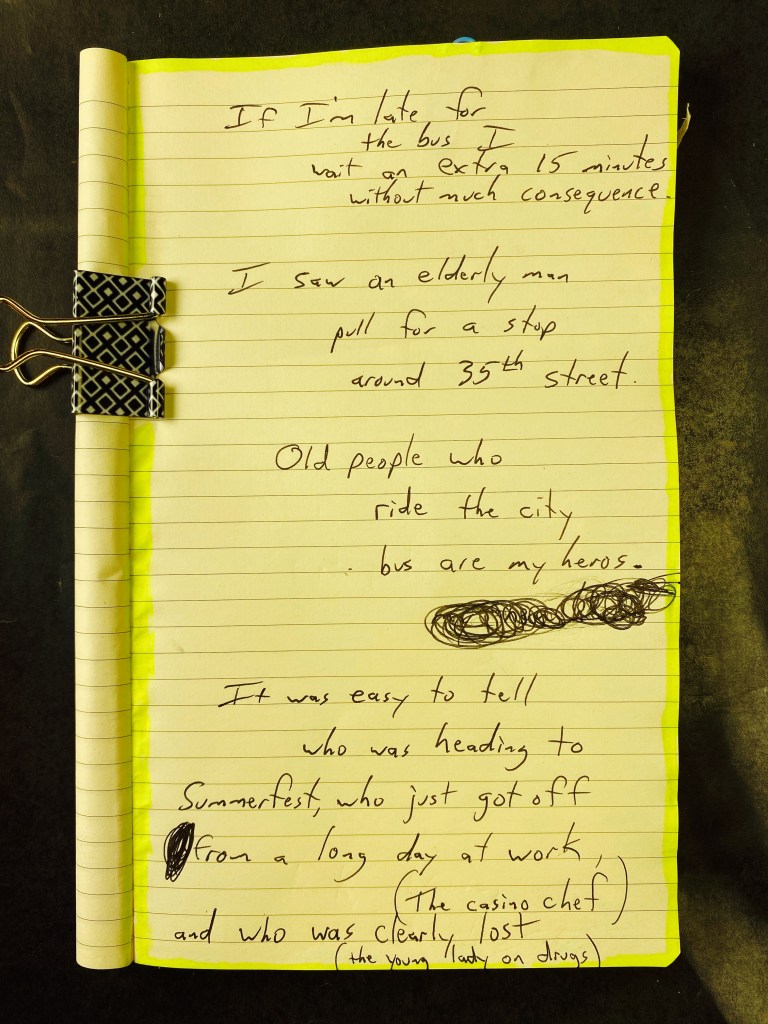 If I'm late for
the bus I
wait an extra 15 minutes
without much consequence.
I saw an elderly man
pull for a stop
around 35th street.
Old people who
ride the city
bus are my heros.
It was easy to tell
who was heading to
Summerfest, who just got off
from a long day at work,
(The casino chef)
and who was clearly lost
(the young lady on drugs)